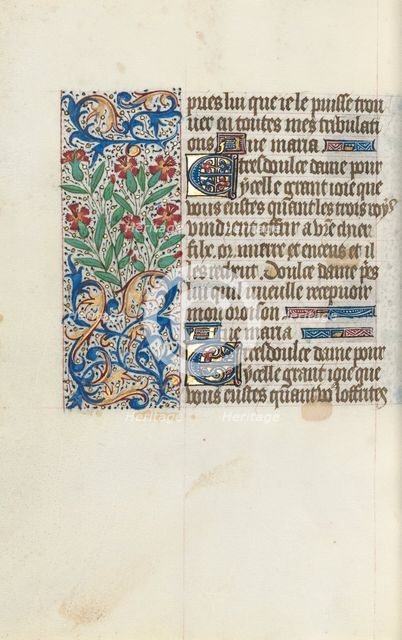 pues lui que ie le puisse trou
uer en toutes mes tribulati
ons Aue maria
E tresdoulce dame pour
ycelle grant ioie que
vous eustes quant les trois roys
vindrent offrir a vre chier
filx. or. mierre et encens et il
les recheut. Doulce dame pes
lui quil vueille recepuoir
mon oroison
Aue maria
E tresdoulce dame pour
ycelle grant ioie que
vous eustes quant vo loffrites
Heritage
Heritage
Heritage
Heritage